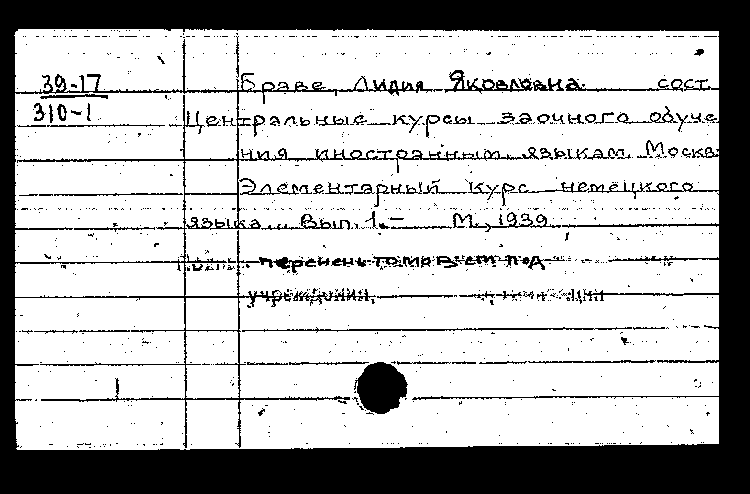 39-17
310-1
Браве, Лидия Яковлевна. сост.
Центральные курсы заочного обуче
ния иностранным языкам. Москва.
Элементарный курс немецкого
языка... Вып. 1.– М., 1939
перечень томов см под
учреждения,
1